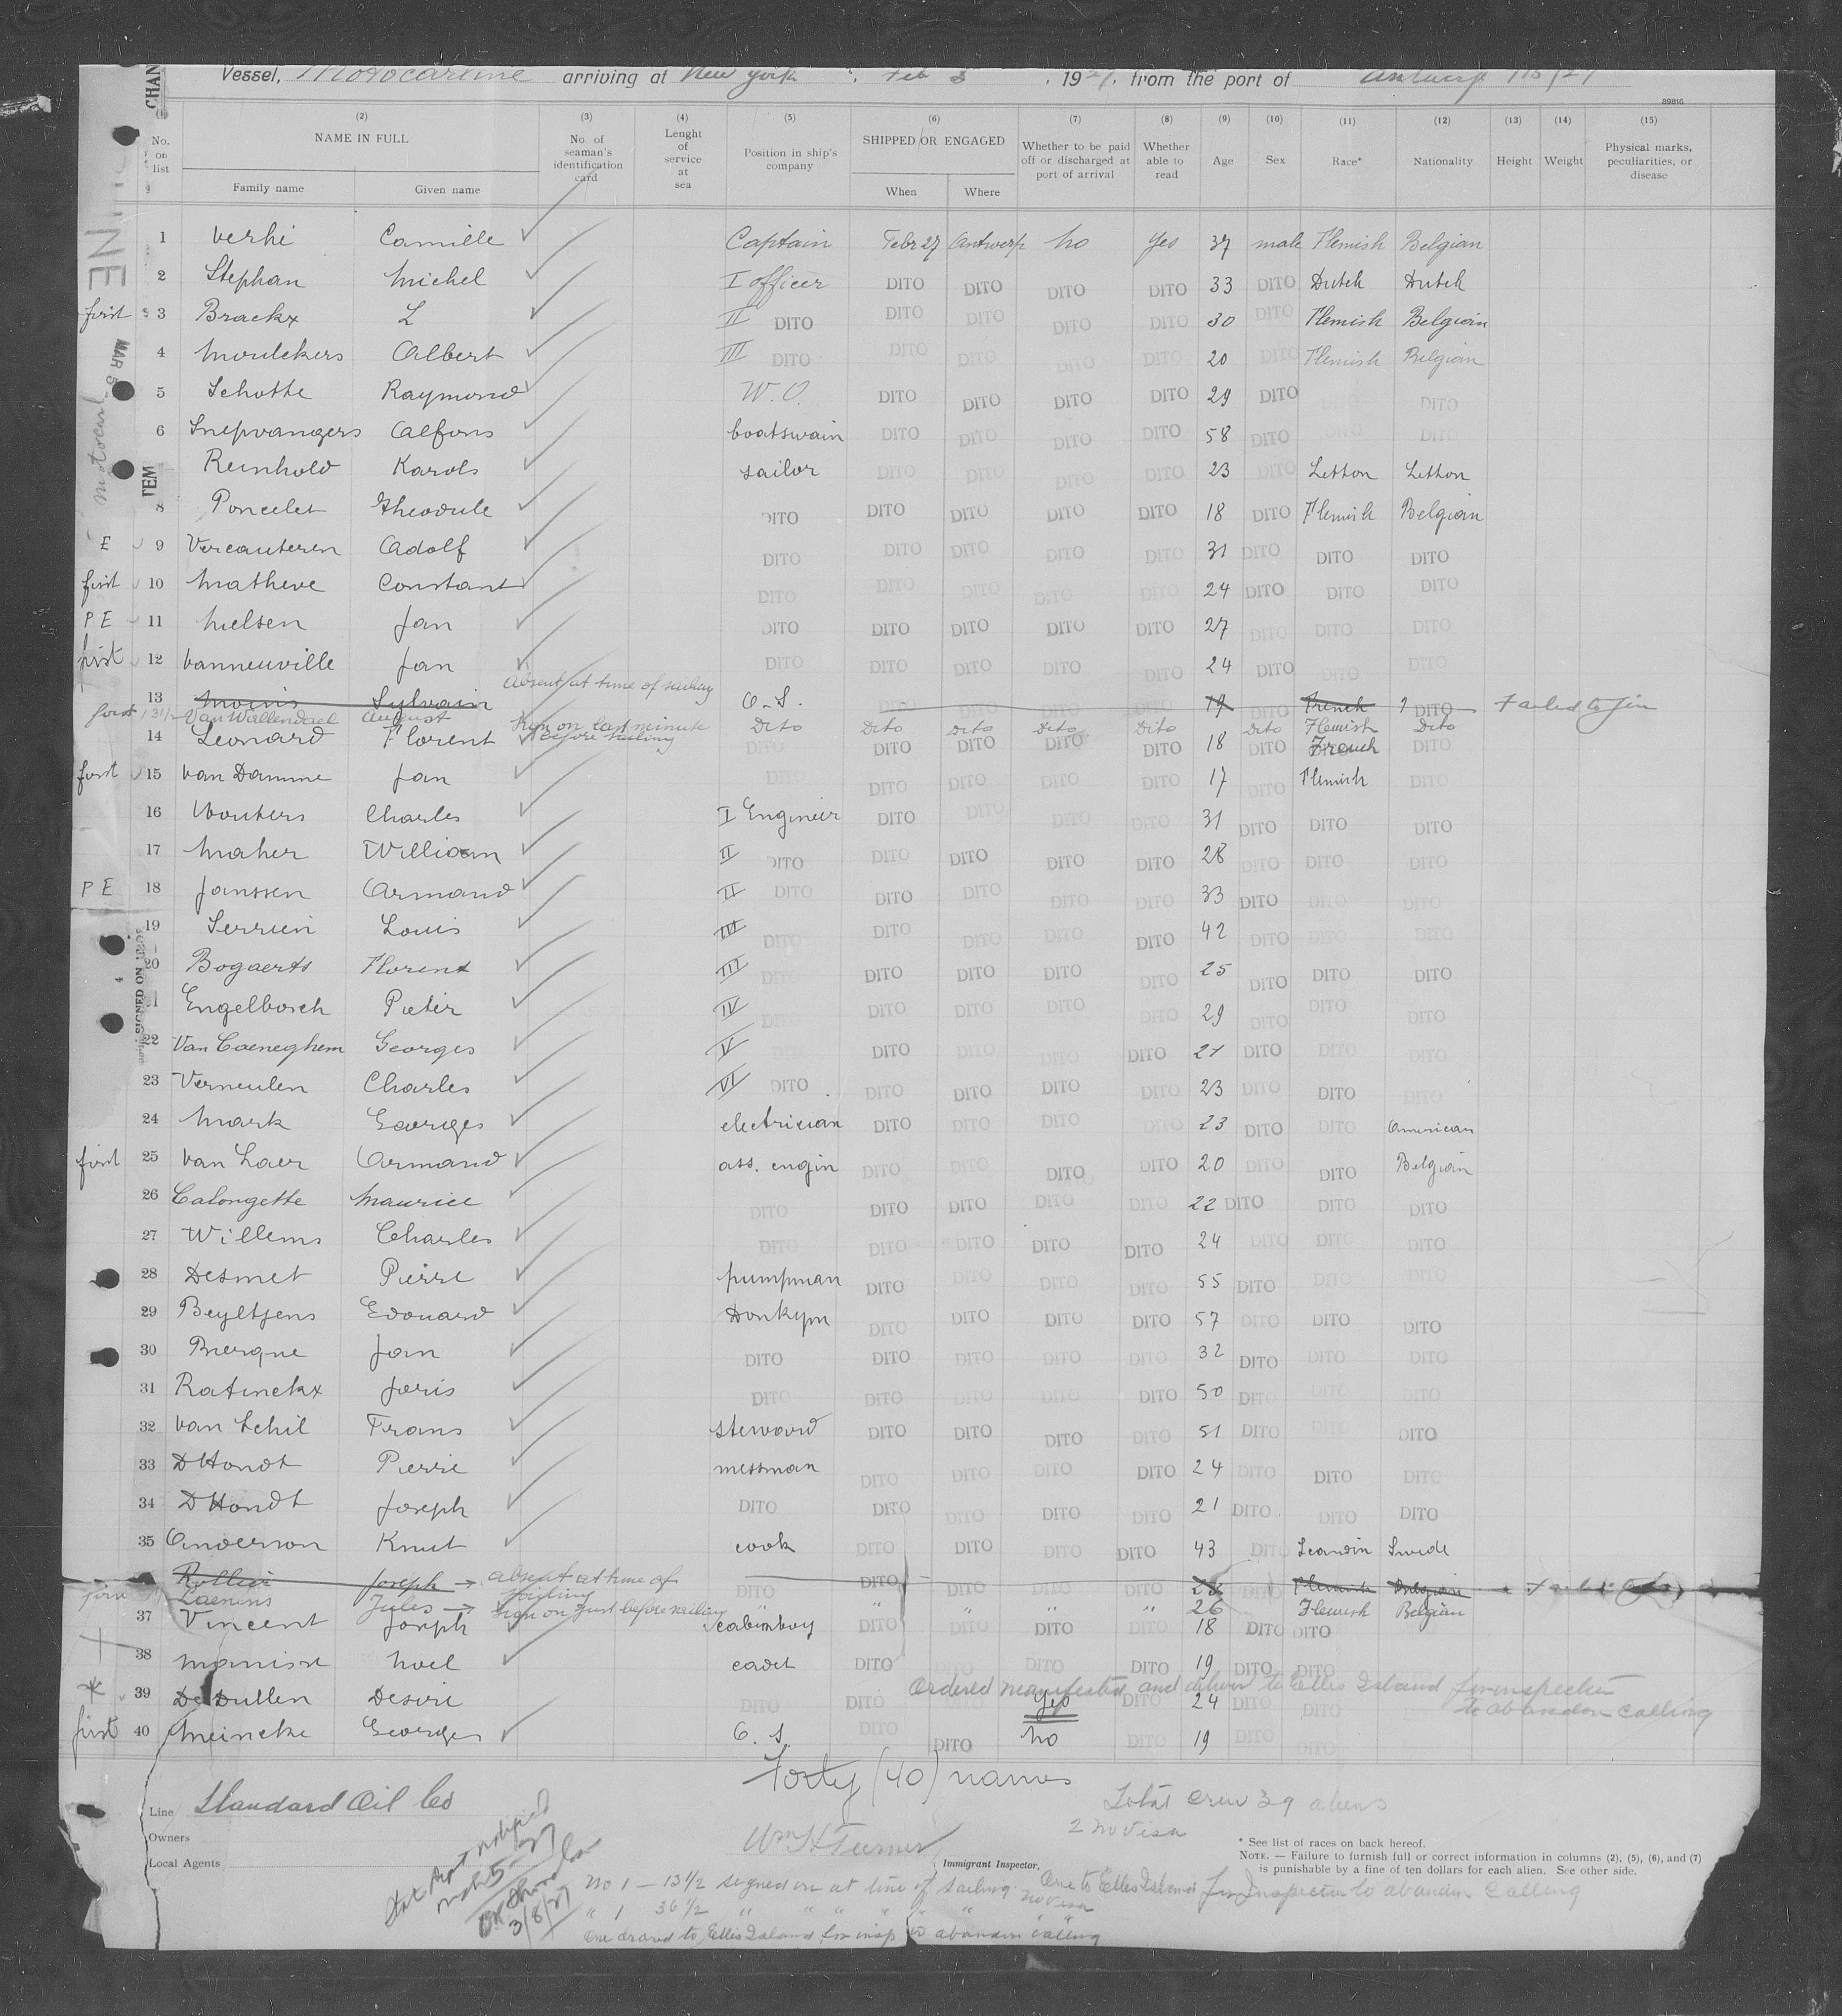 Vessel, Motocarline arriving at New York, Feb 3, 1927, from the port of Antwerp
39816
(2) (3) (4) (5) (6) (7) (8) (9) (10) (11) (12) (13) (14) (15)
No. on list NAME IN FULL No. of seaman's identification card Lenght of service at sea Position in ship's company SHIPPED OR ENGAGED Whether to be paid off or discharged at port of arrival Whether able to read Age Sex Race* Nationality Height Weight Physical marks, peculiarities, or disease
Family name Given name When Where
1 Verhi Camille Captain Febr 27 Antwerp no yes 37 male Flemish Belgian
2 Stephan Michel I officer DITO DITO DITO DITO 33 DITO Dutch Dutch
first 3 Brackx L II DITO DITO DITO DITO DITO 30 DITO Flemish Belgian
4 Moulckers Albert III DITO DITO DITO DITO DITO 20 DITO Flemish Belgian
5 Schotte Raymond W.O. DITO DITO DITO DITO 29 DITO DITO
6 Snepvangers Alfons boatswain DITO DITO DITO DITO 58 DITO DITO DITO
Reinhold Karols sailor DITO DITO DITO DITO 23 DITO Letton Letton
8 Poncelet Theodule DITO DITO DITO DITO DITO 18 DITO Flemish Belgian
E 9 Vercauteren Adolf DITO DITO DITO DITO DITO 31 DITO DITO DITO
first 10 Matheve Constant DITO DITO DITO DITO DITO 24 DITO DITO DITO
PE 11 Nielsen Jan DITO DITO DITO DITO DITO 27 DITO DITO DITO
first 12 Vanneuville Jan DITO DITO DITO DITO DITO 24 DITO DITO DITO
Absent at time of sailing
13 Sylvain O.S. 19 DITO French DITO Failed to join
first 13 1/2 Van Wallendael August Sign on last minute before sailing Dito Dito Dito Dito Dito Dito Flemish Dito
14 Leonard Florent DITO DITO DITO DITO DITO 18 DITO French DITO
first 15 Van Damme Jan DITO DITO DITO DITO DITO 17 DITO Flemish DITO
16 Wouters Charles I Engineer DITO DITO DITO DITO 31 DITO DITO DITO
17 Maher William II DITO DITO DITO DITO DITO 28 DITO DITO DITO
PE 18 Janssen Armand II DITO DITO DITO DITO DITO 33 DITO DITO DITO
19 Serrien Louis III DITO DITO DITO DITO DITO 42 DITO DITO DITO
20 Bogaerts Florent III DITO DITO DITO DITO DITO 25 DITO DITO DITO
1 Engelbosch Pieter IV DITO DITO DITO DITO DITO 29 DITO DITO DITO
22 Van Caeneghem Georges V DITO DITO DITO DITO 21 DITO DITO DITO
23 Vermeulen Charles VI DITO DITO DITO DITO DITO 23 DITO DITO DITO
24 Mark Georges electrician DITO DITO DITO DITO 23 DITO DITO American
first 25 Van Laer Armand ass. engin DITO DITO DITO DITO 20 DITO DITO Belgian
26 Calongette Maurice DITO DITO DITO DITO DITO 22 DITO DITO DITO
27 Willems Charles DITO DITO DITO DITO DITO 24 DITO DITO DITO
28 Desmet Pierre pumpman DITO DITO DITO DITO 55 DITO DITO DITO
29 Beyltjens Edouard Donkym DITO DITO DITO DITO 57 DITO DITO DITO
30 Bierque Jan DITO DITO DITO DITO DITO 32 DITO DITO DITO
31 Ratinckx Joris DITO DITO DITO DITO DITO 50 DITO DITO DITO
32 Van Schil Frans steward DITO DITO DITO DITO 51 DITO DITO DITO
33 DHondt Pierre messman DITO DITO DITO DITO 24 DITO DITO DITO
34 DHondt Joseph DITO DITO DITO DITO DITO 21 DITO DITO DITO
35 Anderson Knut cook DITO DITO DITO DITO 43 DITO Scandin Swede
Joseph → absent at time of sailing DITO DITO DITO DITO DITO 28 DITO Flemish Belgian
first Laenens Jules → Sign on just before sailing " " " " " 26 Flemish Belgian
37 Vincent Joseph cabinboy DITO DITO DITO DITO 18 DITO DITO
38 Manise Noel cadet DITO DITO DITO DITO 19 DITO DITO
Ordered manifested and deliver to Ellis Island for inspection
to abandon calling
39 De Dullen Desire DITO DITO DITO yes DITO 24 DITO DITO
first 40 Meincke Georges O.S. DITO DITO no DITO 19 DITO DITO
Forty (40) names
Total crew 39 aliens
2 no visa
Line Standard Oil Co
Owners
Local Agents
Wm H Turner
Immigrant Inspector,
* See list of races on back hereof.
NOTE. — Failure to furnish full or correct information in columns (2), (5), (6), and (7)
is punishable by a fine of ten dollars for each alien. See other side.
3/8/27
No 1 — 13 1/2 signed on at time of sailing no visa
One to Ellis Island for Inspection to abandon calling
" 1 36 1/2 " " " " " "
One ordered to Ellis Island for insp to abandon calling